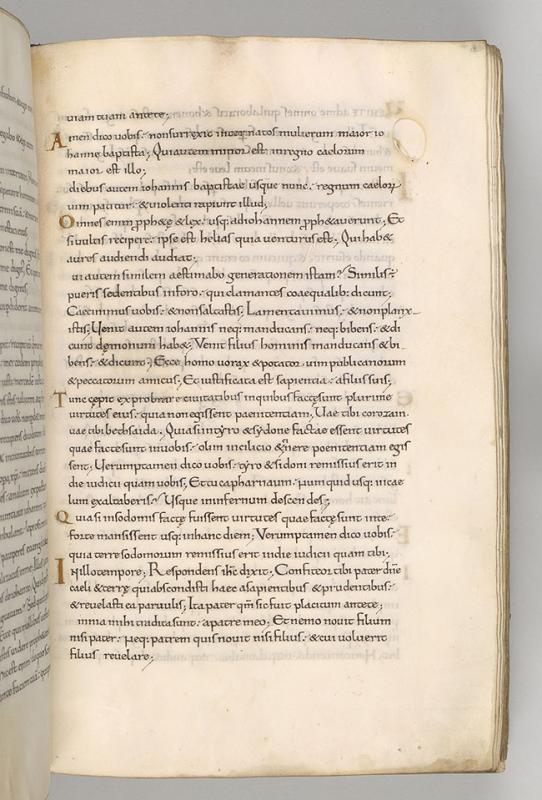 uiam tuam ante te;
Amen dico uobis. non surrexit inter natos mulierum maior io
hanne baptista; Qui autem minor est in regno caelorum
maior est illo;
diebus autem iohannis baptistae usque nunc. regnum caelorum
uim patitur. & uiolenti rapiunt illud;
Omnes enim pph&ę & lex. usq; ad iohannem pph&auerunt; Et
si uultis recipere. ipse est helias qui a uenturus est; Qui hab&
aures audiendi audiat;
ui autem similem aestimabo generationem istam? Similis.
pueris sedentibus in foro. qui clamantes coaequalib; dicunt;
Caecinimus uobis. & non saltastis; Lamentauimus. & non planx
istis; Uenit autem iohannis neq; manducans. neq; bibens. & di
cunt demonium hab&; Venit filius hominis manducans & bi
bens. & dicunt; Ecce homo uorax & potator uini publicanorum
& peccatorum amicus; Et iustificata est sapientia. a filiis suis;
Tunc cępit exprobrare ciuitatibus in quibus factę sunt plurime
uirtutes eius. quia non egissent paenitentiam; Uae tibi corozain.
uae tibi bethsaida. Quia si in tyro & sydone factae essent uirtutes
quae factę sunt in uobis. olim in cilicio & cinere poenitentiam egis
sent; Uerumptamen dico uobis. tyro & sidoni remissius erit in
die iudicii quam uobis; Et tu capharnaum. numquid usq; in cae
lum exaltaberis; Usque in infernum descendes;
Quia si in sodomis factę fuissent uirtutes quae factę sunt in te.
forte mansissent usq; in hanc diem; Verumptamen dico uobis.
quia terrę sodomorum remissius erit in die iudicii quam tibi;
In illo tempore; Respondens ihc dixit; Confiteor tibi pater dne
caeli & terrę quia abscondisti haec a sapientibus & prudentibus.
& reuelasti ea paruulis; Ita pater qm sic fuit placitum ante te;
mnia mihi tradita sunt. a patre meo; Et nemo nouit filium
nisi pater. neq; patrem quis nouit nisi filius. & cui uoluerit
filius reuelare;